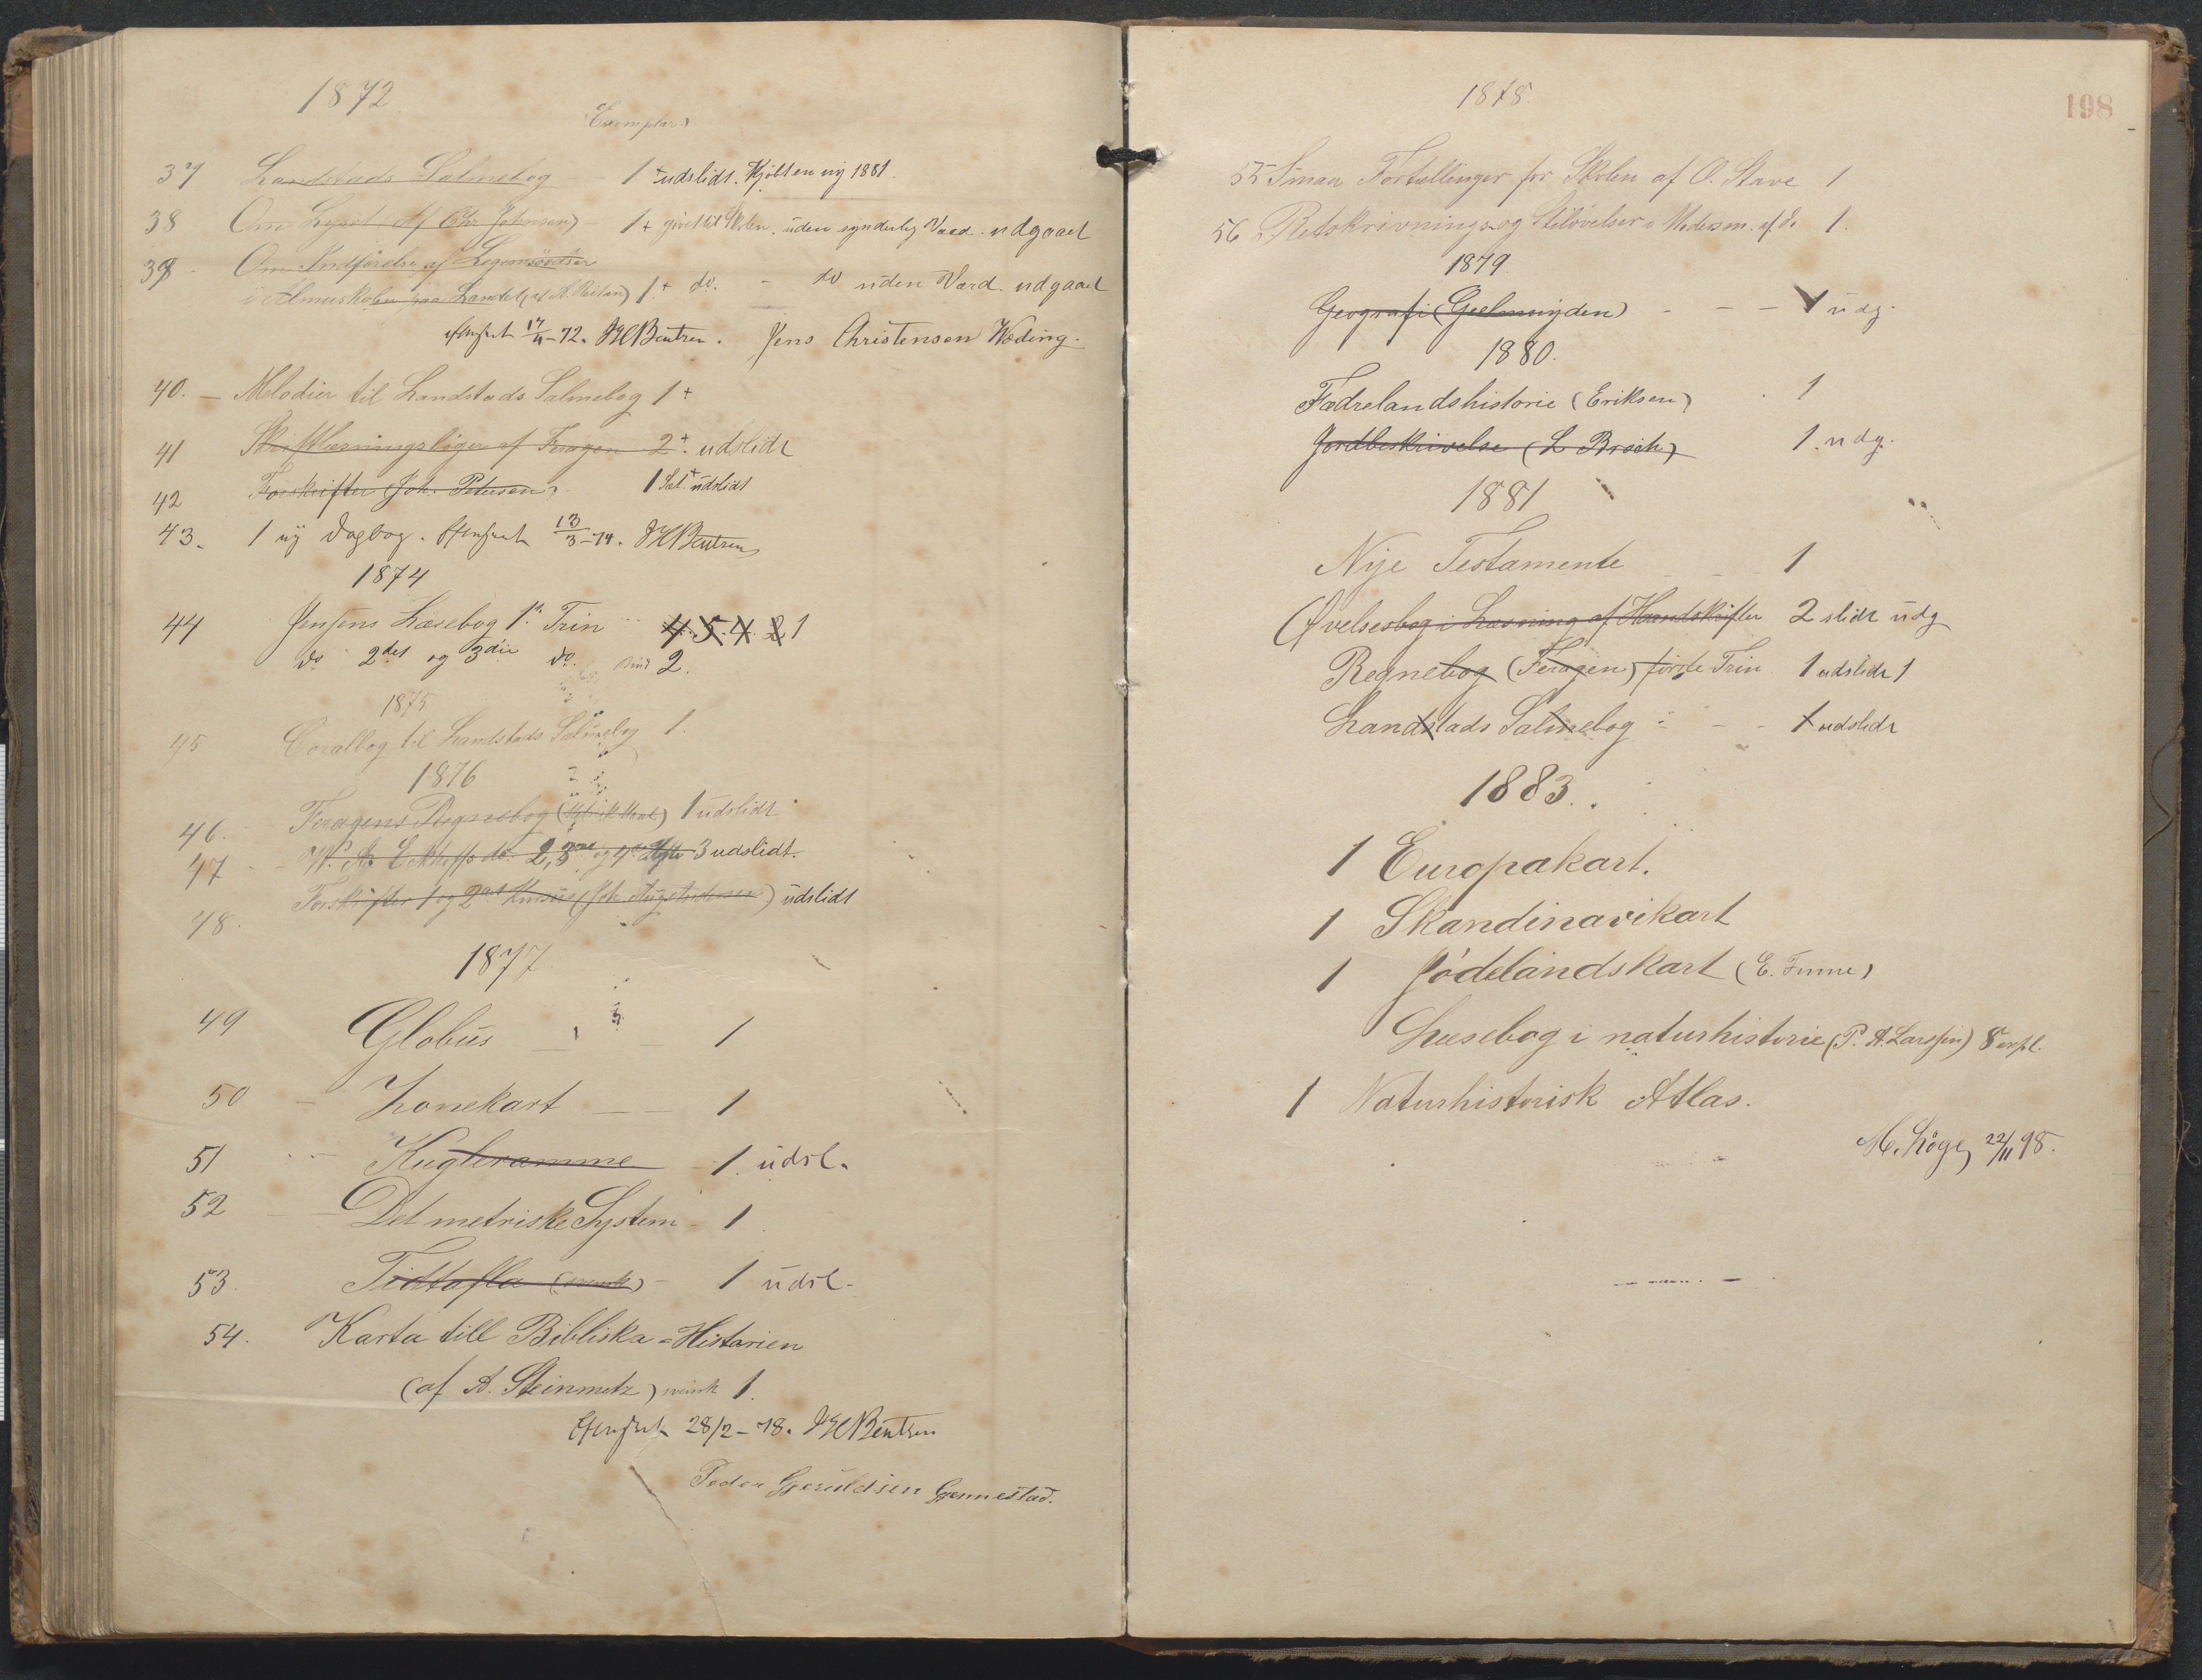 1872
Exemplar
37 Landstads Salmebog 1 + udslidt. Kjøbt en ny 1881.
38 Om Lyset af Chr Johnsen) 1 + givet til Skolen. uden synderlig Værd. udgaaet
39 Om Indførelse af Legemsøvelser
i Almuskolen paa Landet (af K. Reitan) 1. + do. - do uden Værd. udgaaet
-72. Bentzen. Jens Christensen Weding.
40. - Melodier til Landstads Salmebog 1 +
41 Skriftlæsningsbøger af Feragen 2 + udslidt
42 Forskrifter (Joh. Petersen) 1 Sæt + udslidt
43. 1 ny Dagbog. Efterseet 13/3-74. Bentzen
1874
44 Jensens Læsebog 1ste Trin 4 5. 4. 2 1
do 2det og 3die do. Bind 2.
1875
45 Coralbog til Landstads Salmebog 1.
1876
46. Feragens Regnebog 1 udslidt
47 Eckhoffs do. 2, 3die og 4de Hefte 3 udslidt.
48. Forskrifter 1 og 2det Kursus (Joh. ) udslidt
1877
49 Globus 1
50 - Zonekart 1
51 Kugleramme 1. udsl.
52 Det metriske System - 1
53. Tidtafla (svensk) - 1 udsl.
54. Karta till Bibliska-Historien
(af A. Steinmetz) svensk 1.
Efterseet 28/2-78. Bentzen
Peder Gjeruldsen Gjennestad.
1878.
198
55 Smaa Fortællinger for Skolen af O. Stave 1
56 Retskrivnings- og Stiløvelser i Modersm. af do 1.
1879.
Geografi (Geelmuyden) - - - 1 udg.
1880.
Fædrelandshistorie (Eriksen) 1
Jordbeskrivelse (L Broch) 1. udg.
1881
Nye Testamente 1
Øvelsesbog i Læsning af Haandskrifter 2 slidt udg
Regnebog (Feragen) første Trin 1 udslidt 1
Landstads Salmebog - - 1 udslidt
1883.
1 Europakart.
1 Skandinavikart
1 Jødelandskart (E. Finne)
Læsebog i naturhistorie (P. A. Larssen) 8 expl.
1 Naturhistorisk Atlas.
22/11 98.